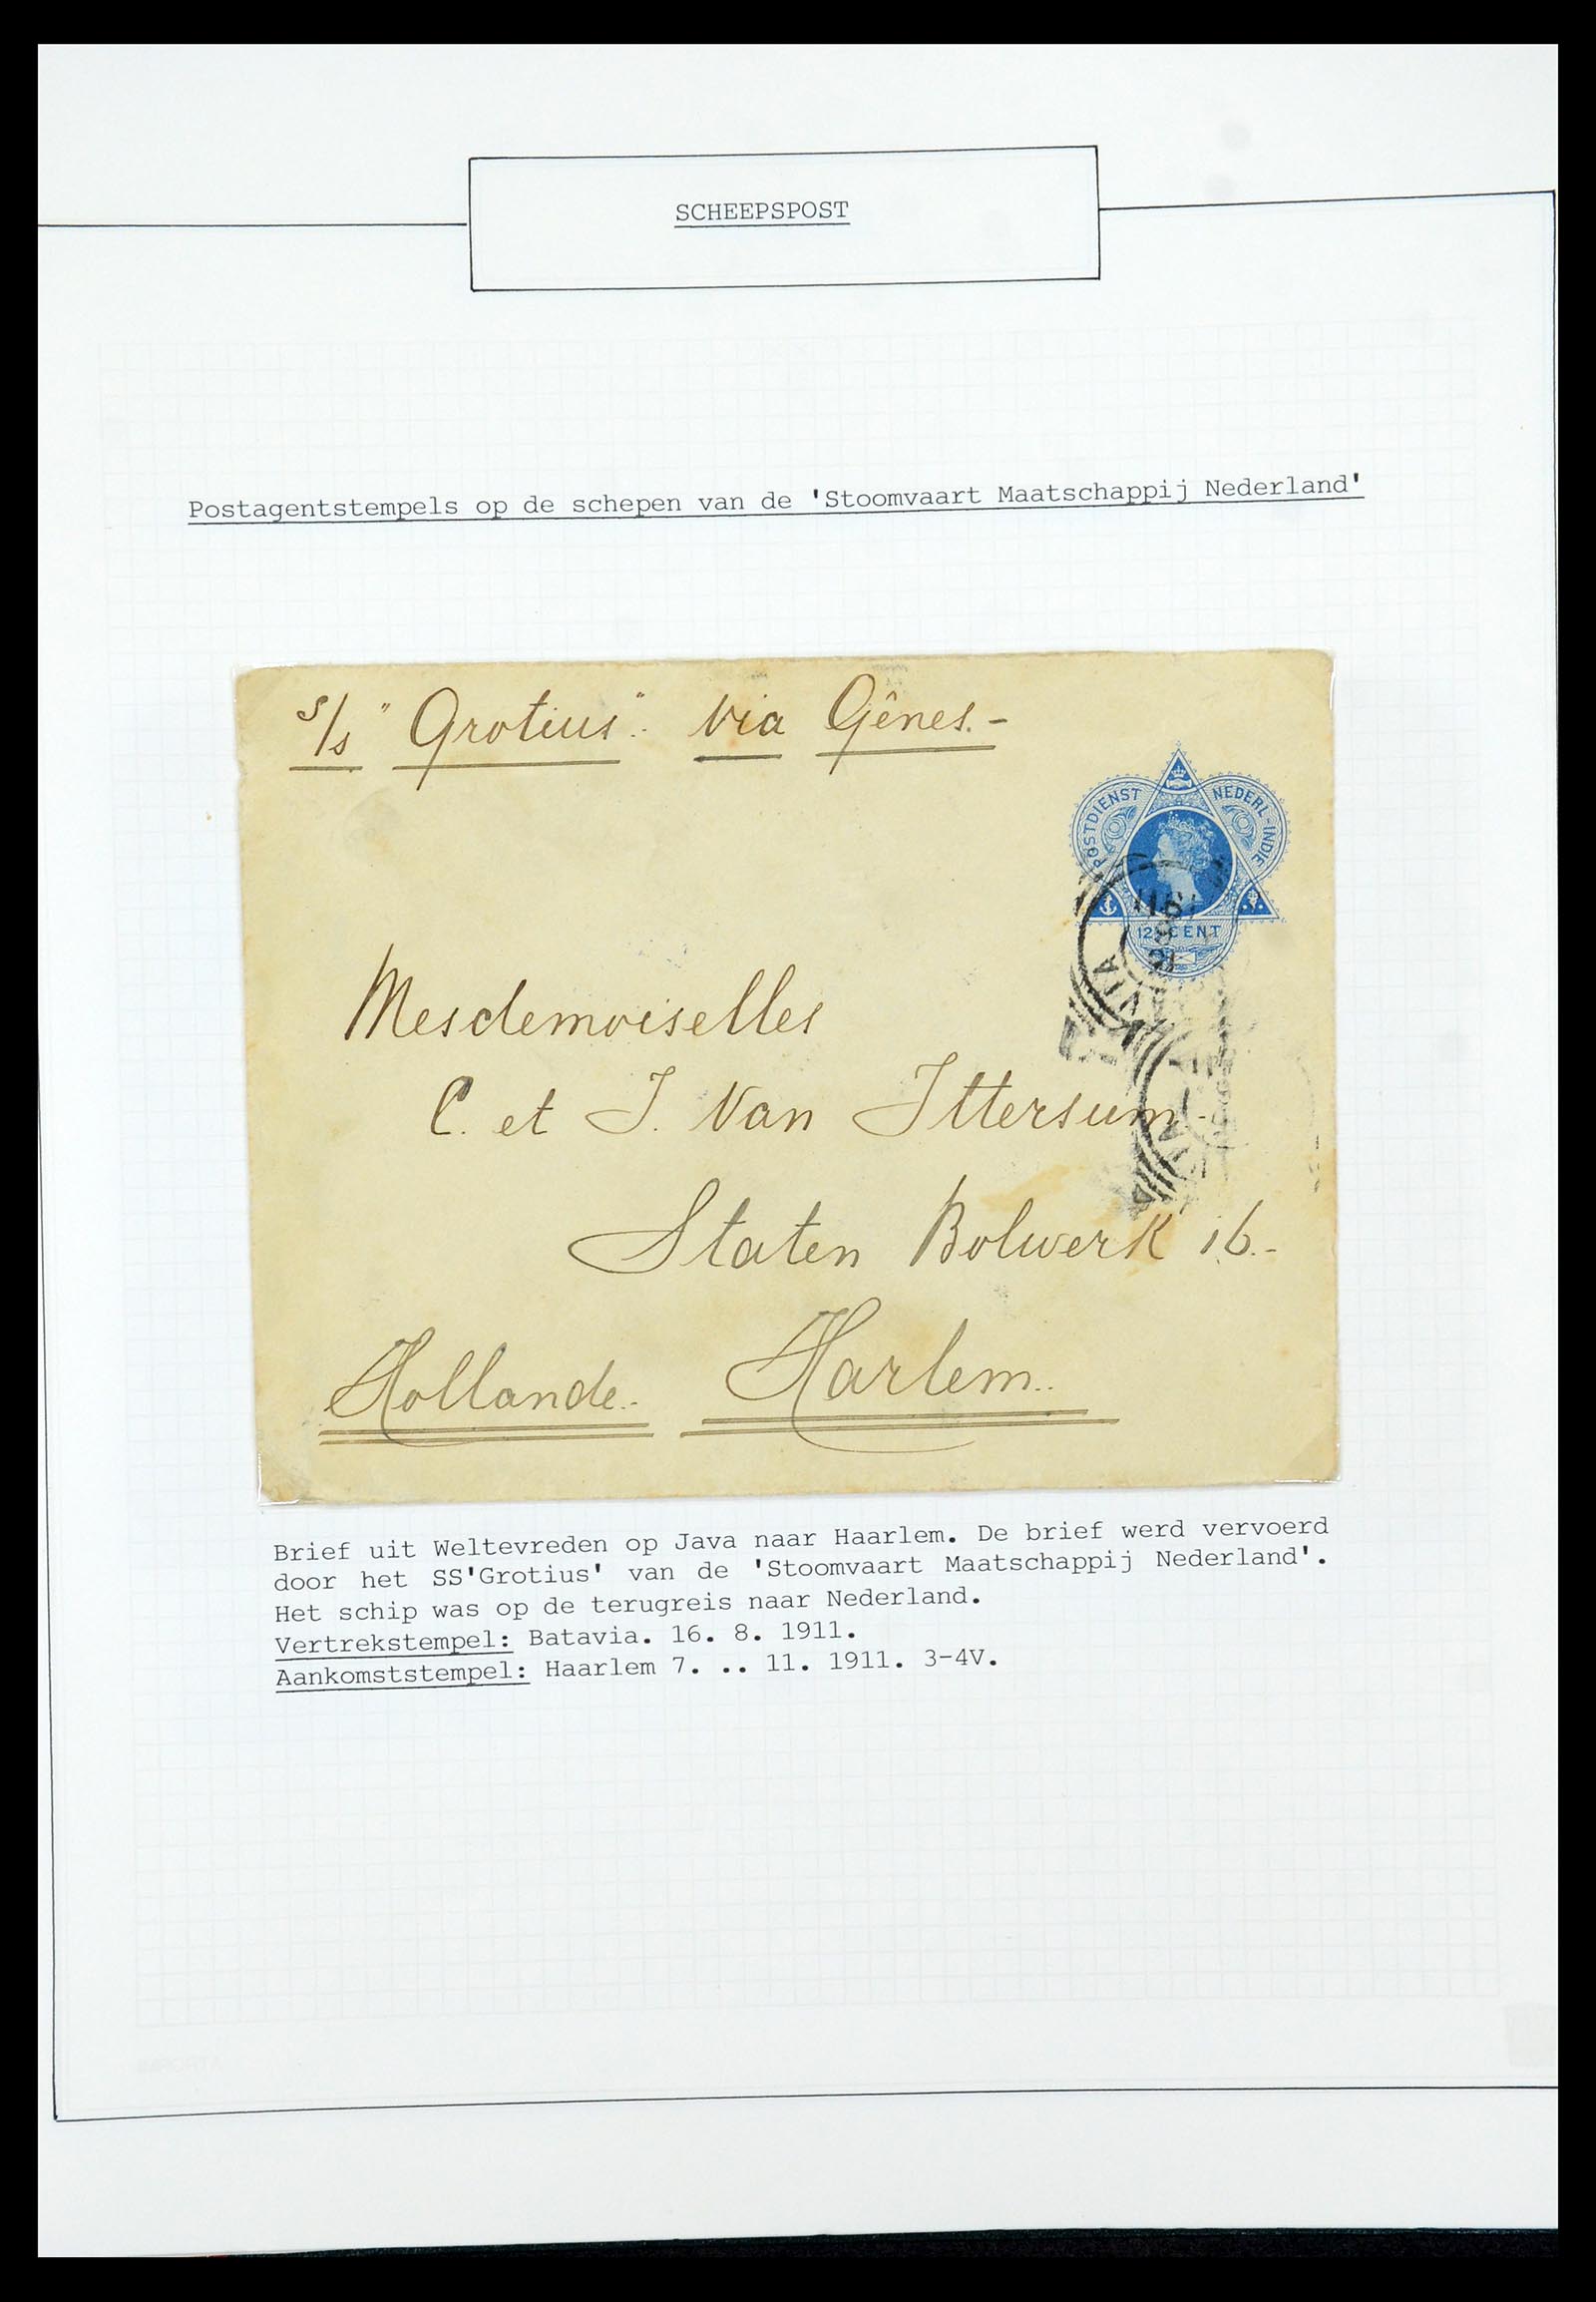 SCHEEPSPOST
Postagentstempels op de schepen van de 'Stoomvaart Maatschappij Nederland'
S/s "Grotius". Via Gênes.-
POSTDIENST NEDERL-INDIE
12½ CENT
1911
8
VIA
Mesdemoiselles
C. et J. Van Ittersum.-
Staten Bolwerk 16.-
Hollande.- Harlem..
Brief uit Weltevreden op Java naar Haarlem. De brief werd vervoerd
door het SS'Grotius' van de 'Stoomvaart Maatschappij Nederland'.
Het schip was op de terugreis naar Nederland.
Vertrekstempel: Batavia. 16. 8. 1911.
Aankomststempel: Haarlem 7. .. 11. 1911. 3-4V.